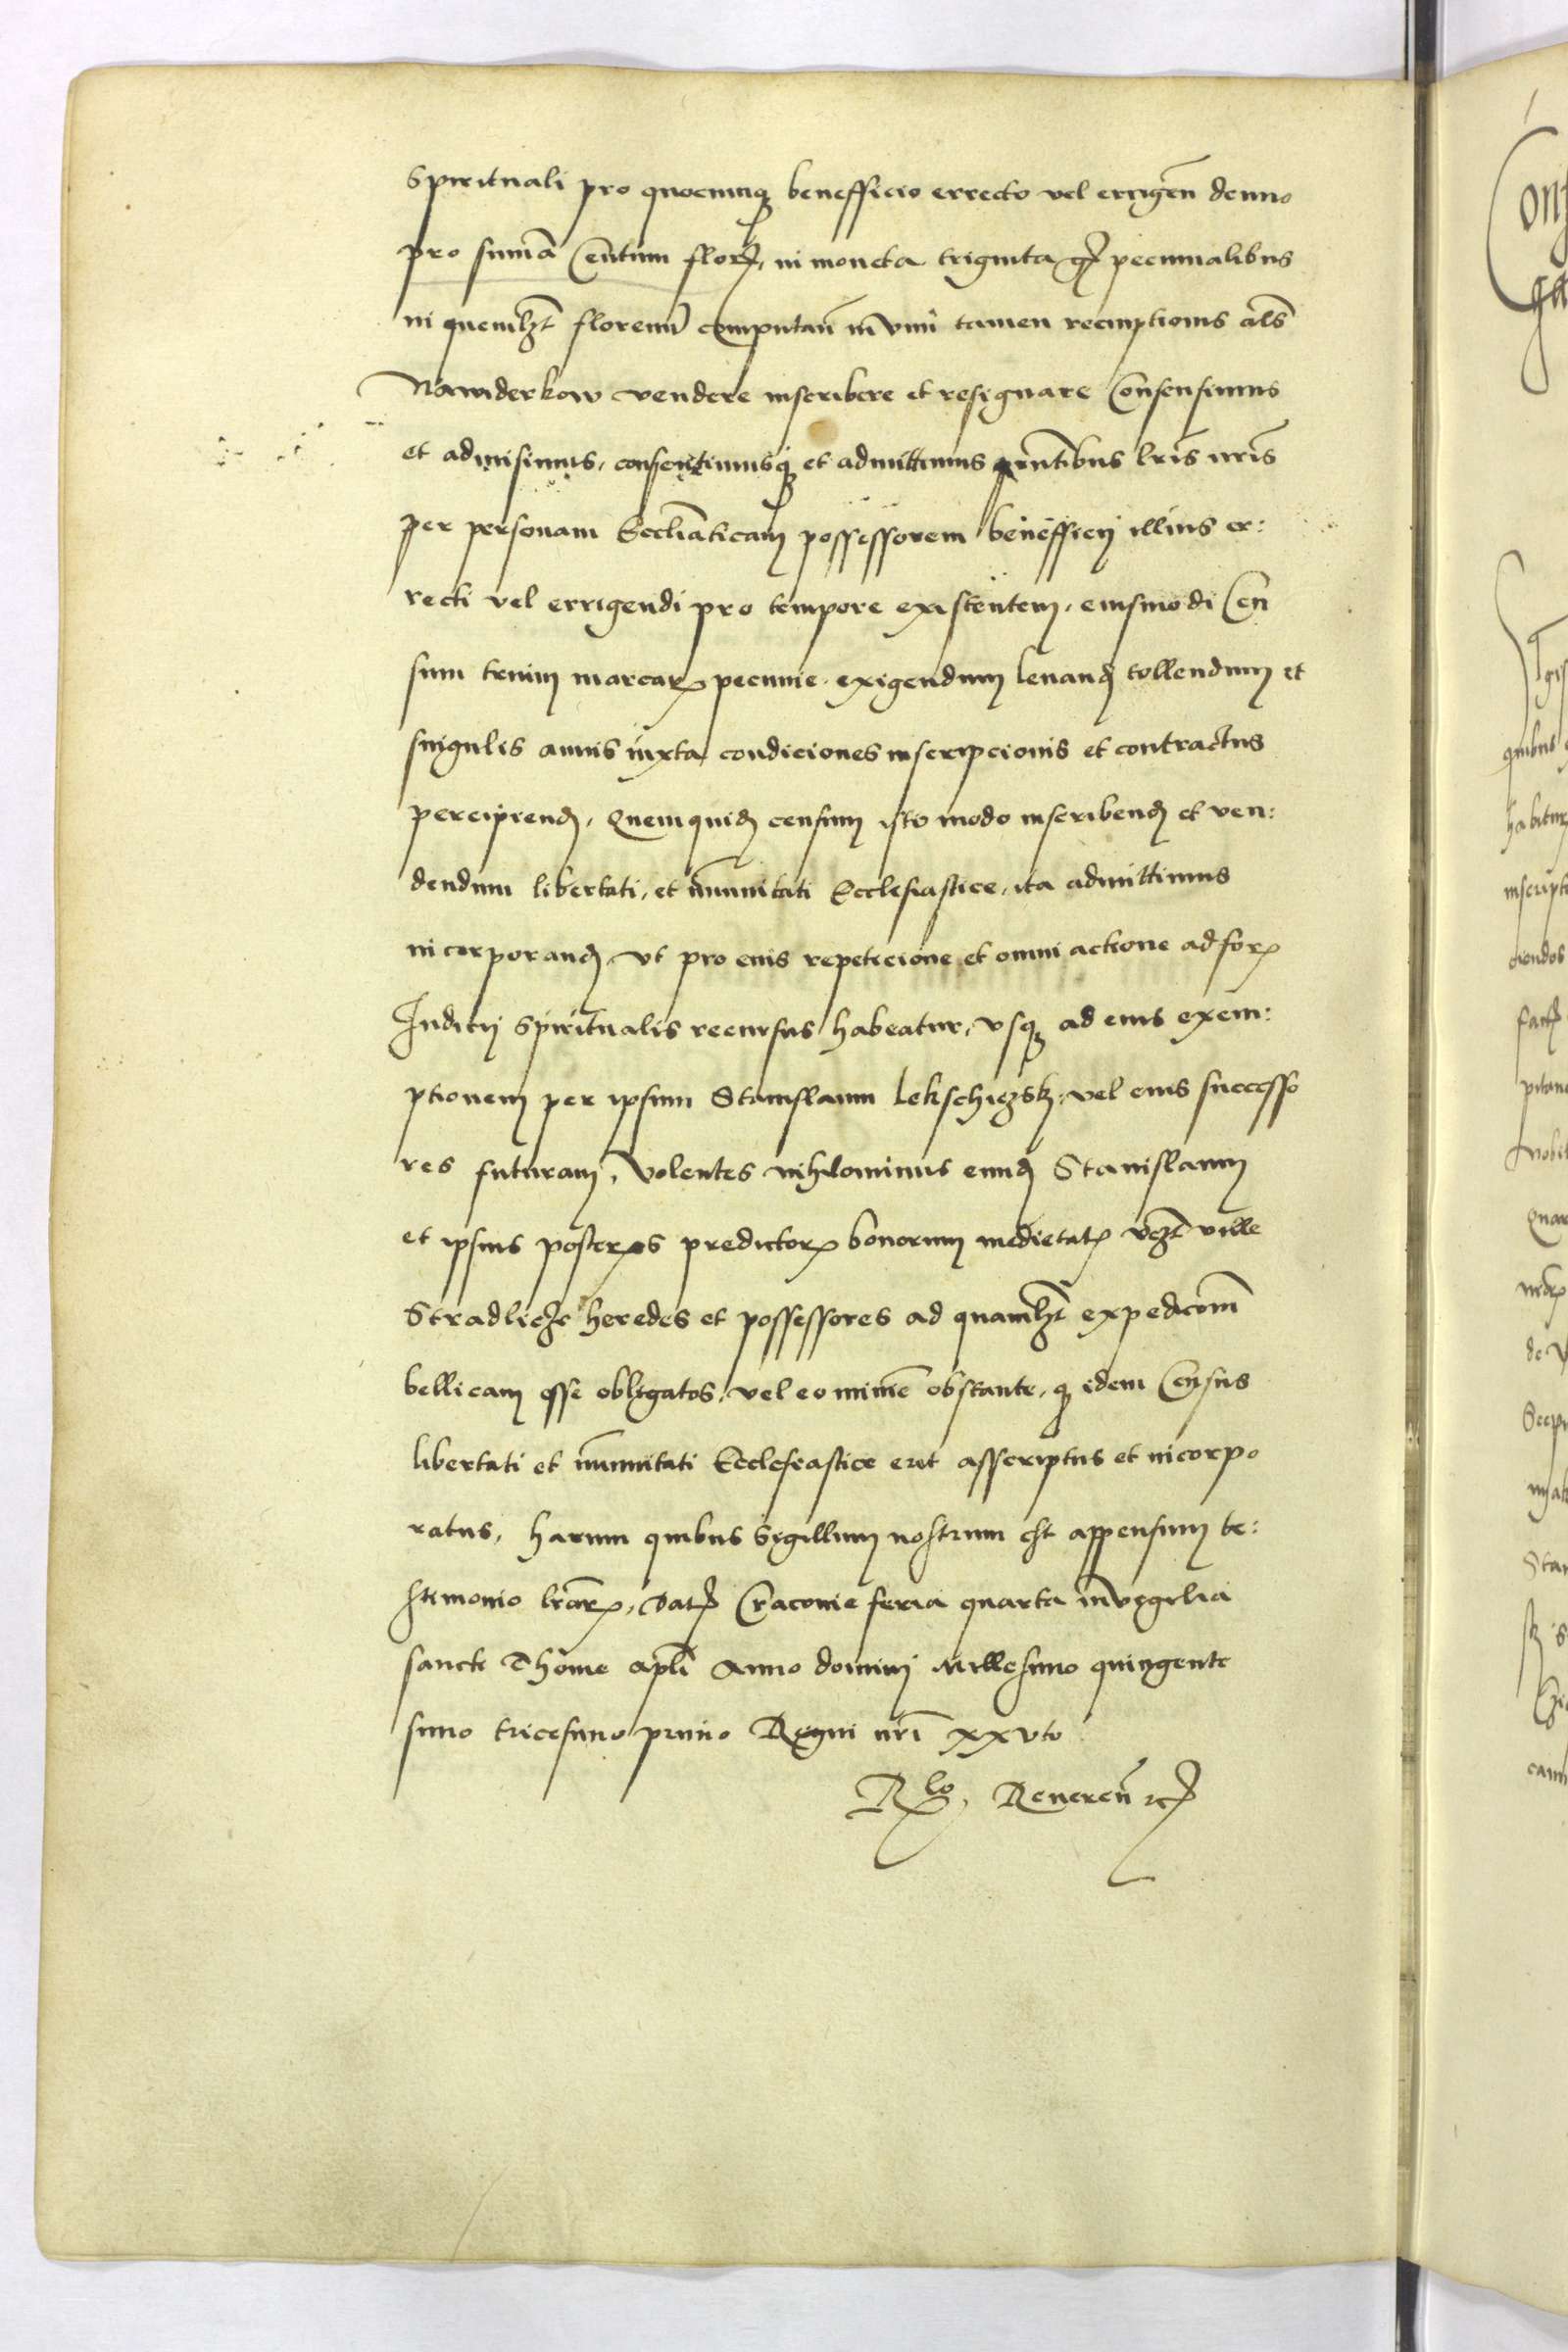 spirituali pro quocunqꝫ benefficio errecto vel errigeñ denuo
pro sum̃a Centum floꝝ, in moneta triginta gꝝ pecunialibus
in quemlꝫt florenũ computañ in vim tamen reemptionis als̃
Nawiderkow vendere inscribere et resignare Consensimus
et admisimus, consentimusqꝫ et admittimus pñtibus lr̃is nr̃is
per personam Eccl̃iasticam possessorem benefficij illius er:
recti vel errigendi pro tempore existentem, eiusmodi Cen
sum trium marcaꝝ pecunie exigendum leuanđ tollendum et
singulis annis iuxta condiciones inscripcionis et contractus
percipienđ, Quemquiđ censum isto modo inscribenđ et ven:
dendum libertati, et im̃unitati Ecclesiastice, ita admittimus
incorporanđ, vt pro eius repeticione et omni actione ad foꝝ
Iudicij spiritualis recursus habeatur, vsqꝫ ad eius exem:
ptionem per ipsum Stanislaum Lekschiczskj, vel eius successo
res futuram, Volentes nihilominus eunđ Stanislaum
et ipsius posteros predictoꝝ bonorum medietatꝭ vꝫt ville
Stradlicze heredes et possessores ad quamlꝫt expedicõm
bellicam esse obligatos, vel eo minime obstante, qꝫ idem Census
libertati et im̃unitati Ecclesiastice erit asscriptus et incorpo
ratus, harum quibus Sigillum nostrum est appensum te:
stimonio lr̃aꝝ, Datꝭ Cracouie feria quarta in vigilia
sancti Thome apl̃i Anno dominj Millesimo quingente
simo tricesimo primo Regni nr̃i xxvto
Rlo, Reuereñ ꝛcꝭ